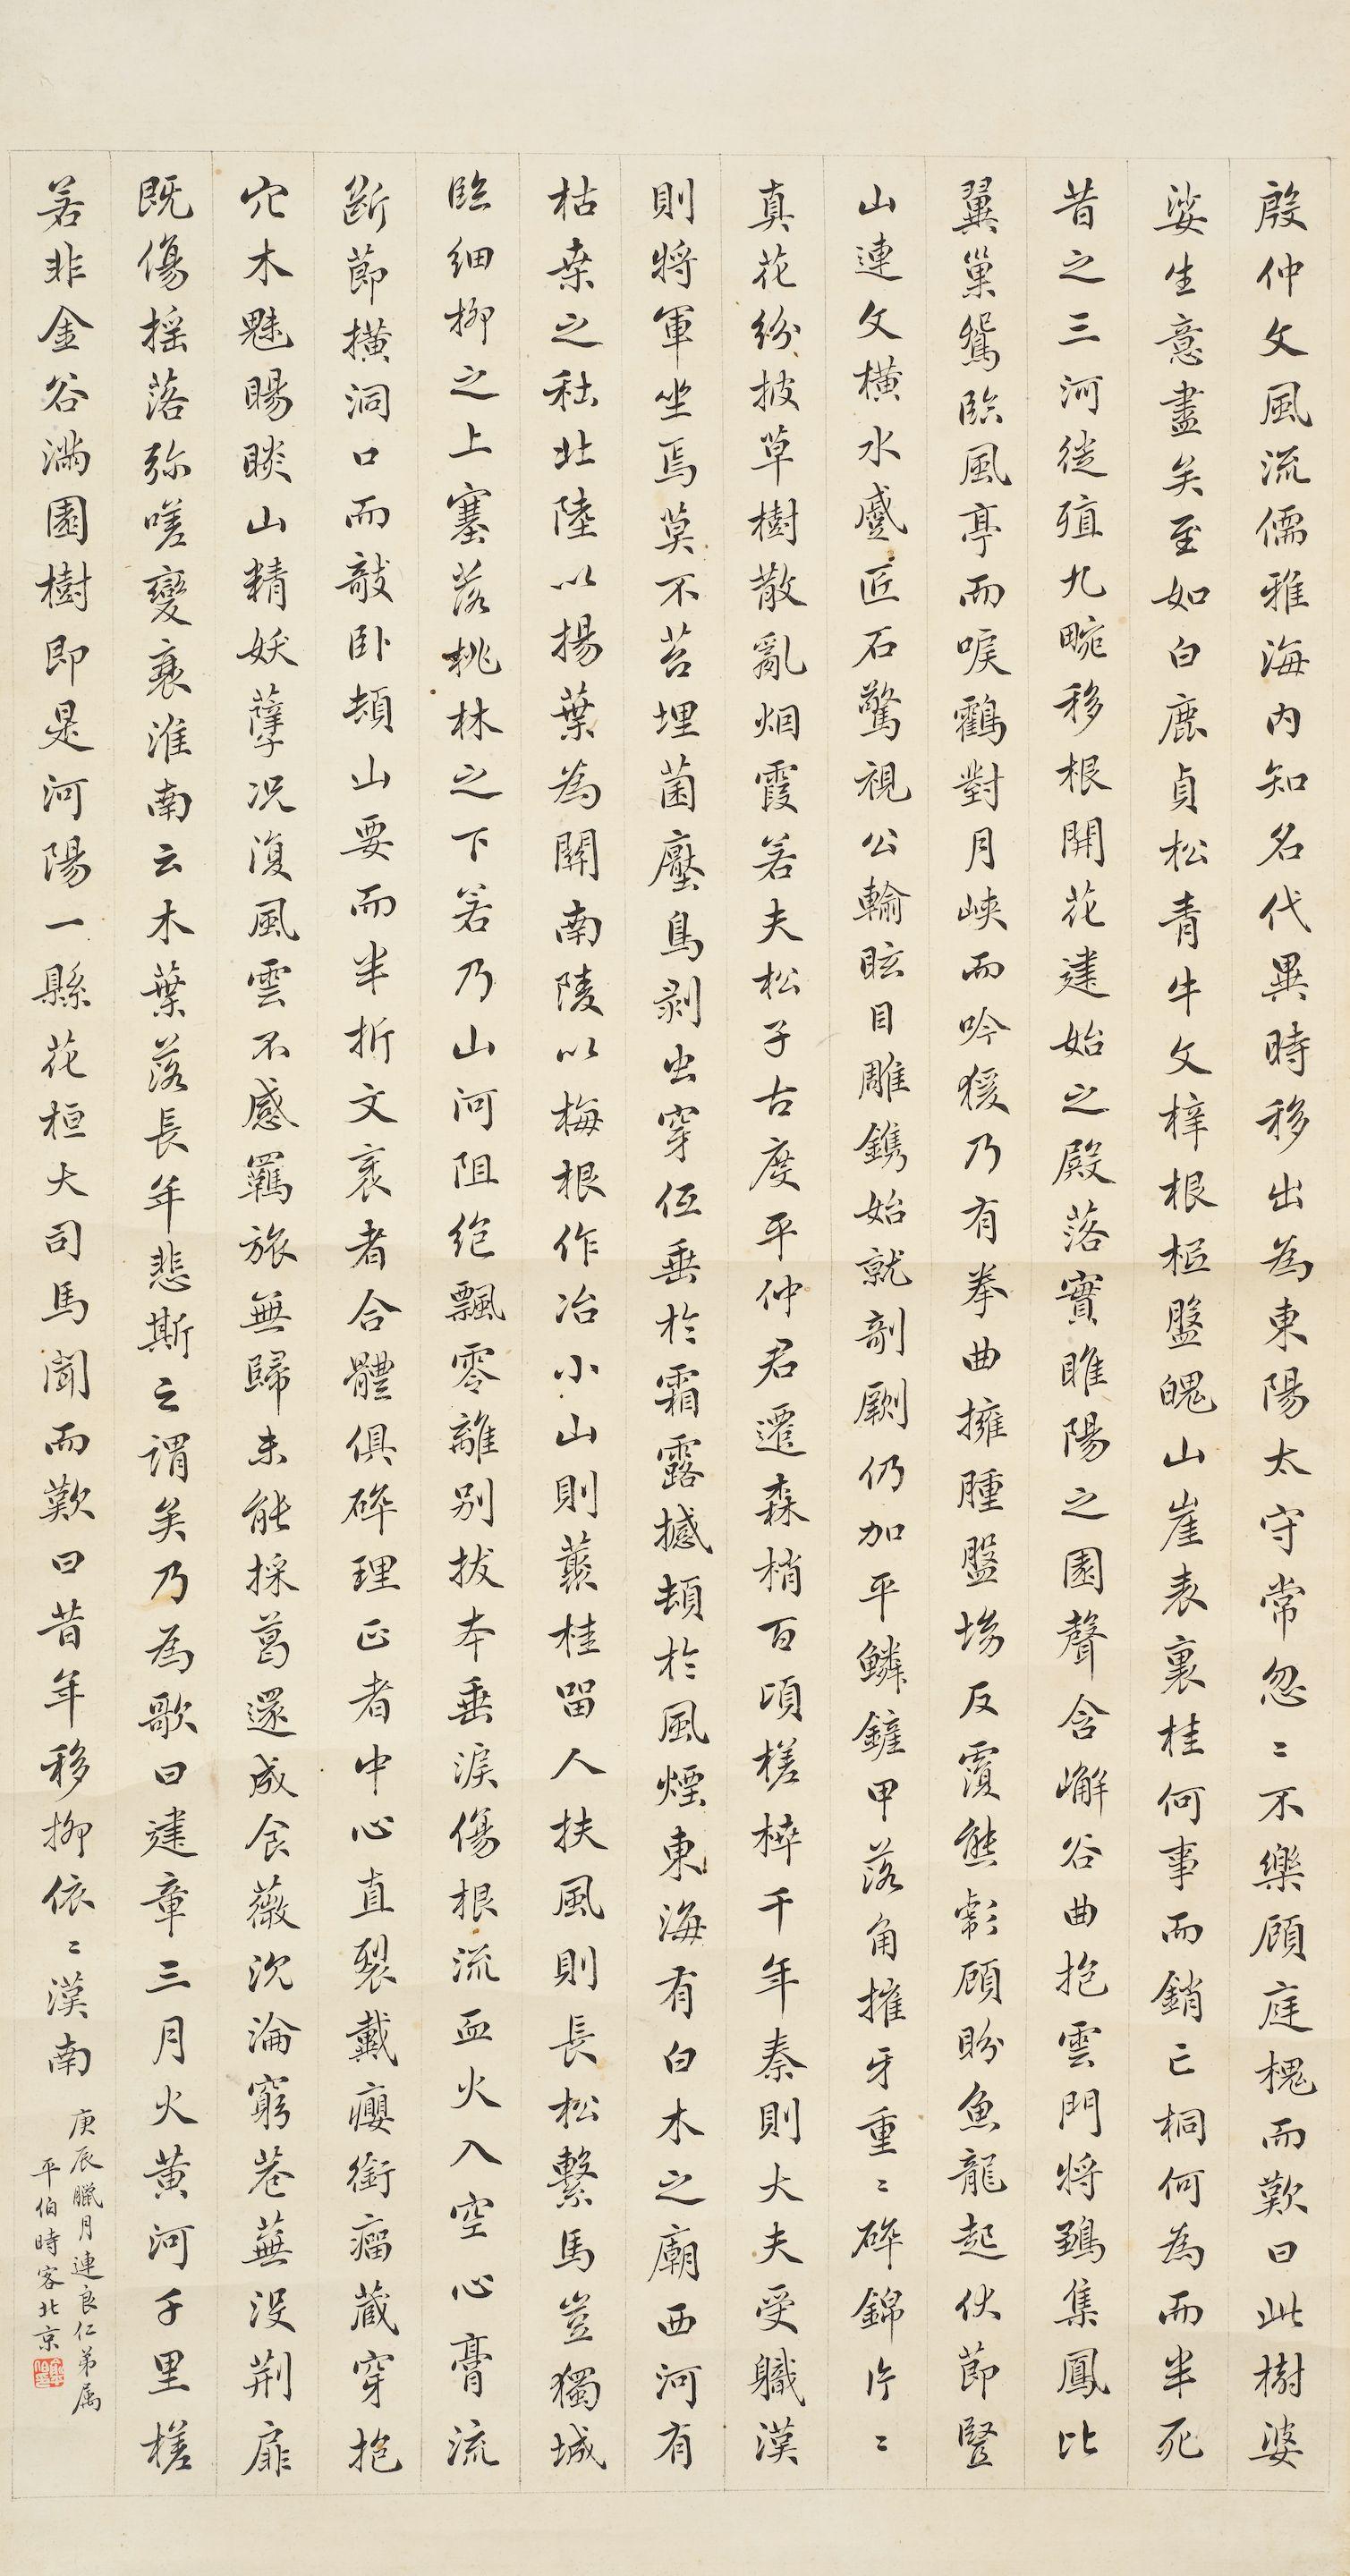 殷仲文風流儒雅海内知名代異時移出為東陽太守常忽〻不樂顧庭槐而歎曰此樹婆
娑生意盡矣至如白鹿貞松青牛文梓根柢盤魄山崖表裏桂何事而銷亡桐何為而半死
昔之三河徙殖九畹移根開花建始之殿落實睢陽之園聲含嶰谷曲抱雲門將鶵集鳳比
翼巢鴛臨風亭而唳鶴對月峽而吟猨乃有拳曲擁腫盤坳反覆熊彪顧盼魚龍起伏節豎
山連文橫水蹙匠石驚視公輸眩目雕鐫始就剞劂仍加平鱗鏟甲落角摧牙重〻碎錦片〻
真花紛披草樹散亂烟霞若夫松子古度平仲君遷森梢百頃槎枿千年秦則大夫受職漢
則將軍坐焉莫不苔埋菌壓鳥剥虫穿伍垂於霜露撼頓於風煙東海有白木之廟西河有
枯桒之社北陸以揚葉為關南陵以梅根作冶小山則藂桂留人扶風則長松繫馬豈獨城
臨細柳之上塞落桃林之下若乃山河阻绝飄零離别拔本垂淚傷根流血火入空心膏流
斷節橫洞口而敧卧頓山要而半折文衺者合體俱碎理正者中心直裂戴癭銜瘤藏穿抱
穴木魅賜睒山精妖孽况復風雲不感羈旅無歸未能採葛還成食薇沉淪窮巷蕪没荆扉
既傷摇落弥嗟變衰淮南云木葉落長年悲斯之謂矣乃為歌曰建章三月火黄河千里槎
若非金谷滿園樹即是河陽一縣花桓大司馬聞而歎曰昔年移柳依〻漢南
庚辰臘月連良仁弟属
平伯時客北京